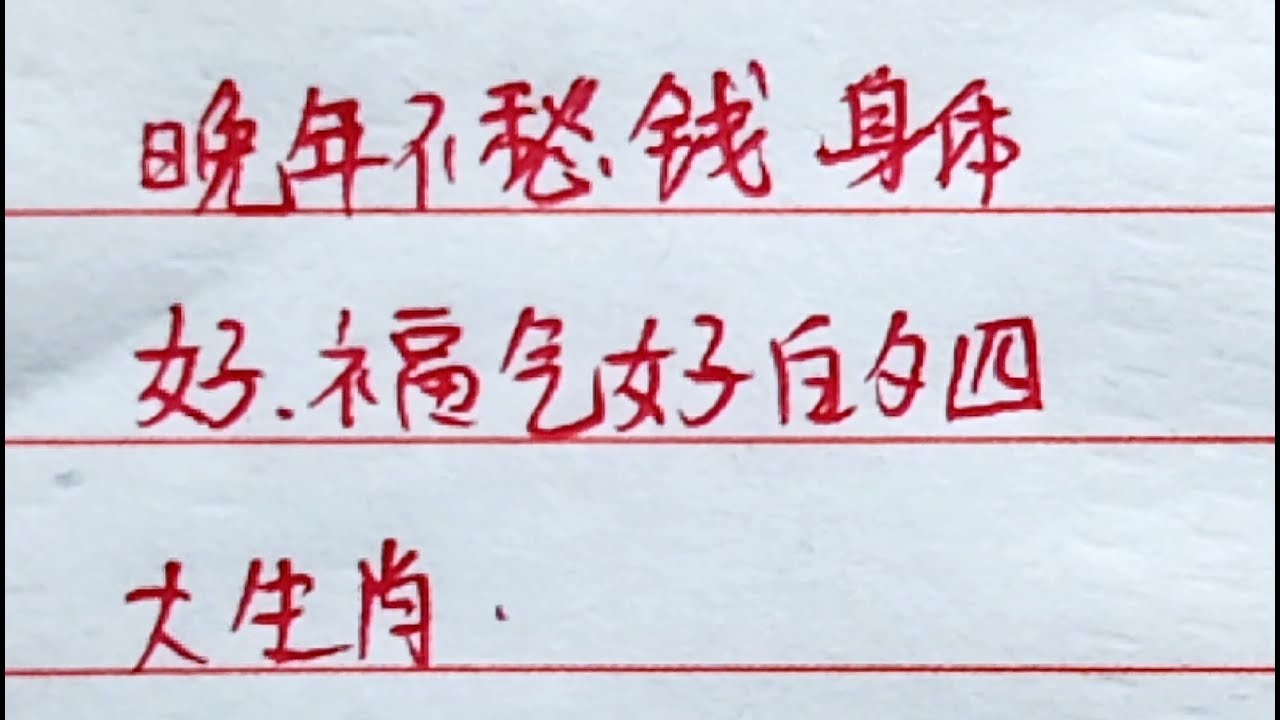 晚年不愁.钱 身体
好.福气好的四
大生肖.